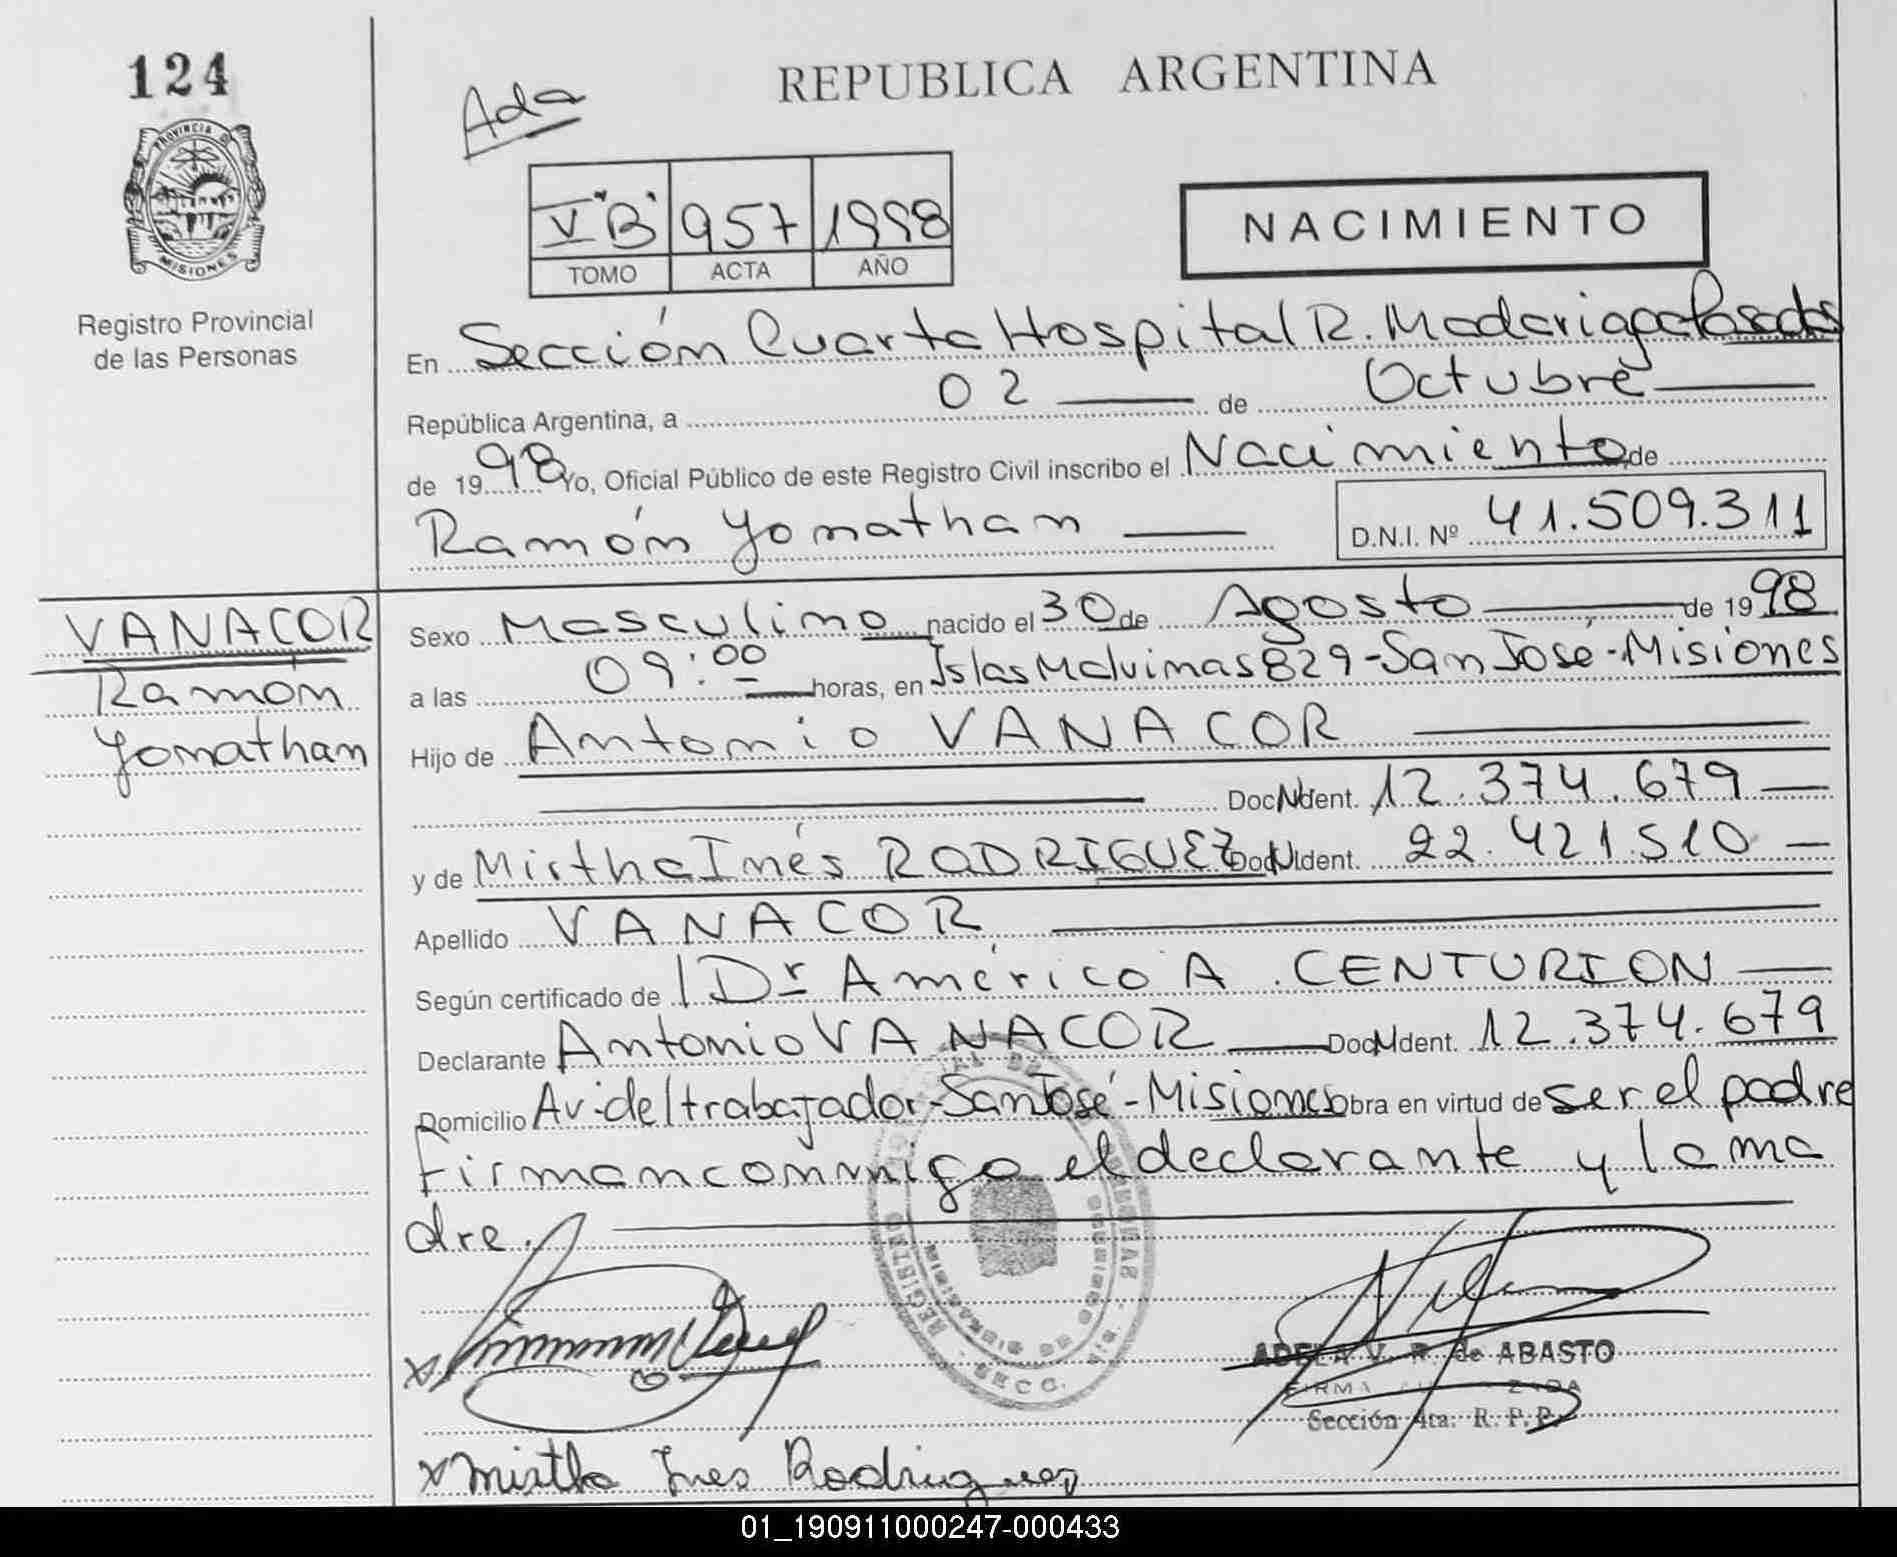 124
PROVINCIA D
MISIONES
Registro Provincial
de las Personas
Ada
REPUBLICA ARGENTINA
V "B" 957 1998
TOMO ACTA AÑO
NACIMIENTO
En Sección Cuarta Hospital R. Madariaga Posadas
República Argentina, a 02 de Octubre
de 1998 Yo, Oficial Público de este Registro Civil inscribo el Nacimiento de
Ramón Yonathan
D.N.I. Nº 41.509.311
VANACOR
Ramón
Yonathan
Sexo Masculino nacido el 30 de Agosto de 1998
a las 09:00 horas, en Islas Malvinas 829-San José-Misiones
Hijo de Antonio VANACOR
Doc N Ident. 12.374.679
y de Mirtha Inés RODRIGUEZ Doc N Ident. 22.421.510
Apellido VANACOR
Según certificado de Dr Américo A. CENTURION
Declarante Antonio VANACOR Doc N Ident. 12.374.679
Domicilio Av. del trabajador-San José-Misiones obra en virtud de ser el padre
Firman conmigo el declarante y la ma
dre.
REGISTRO
SECC.
ADELA V. R. de ABASTO
Sección 4ta: R. P. P.
x Mirtha Ines Rodriguez
01_190911000247-000433